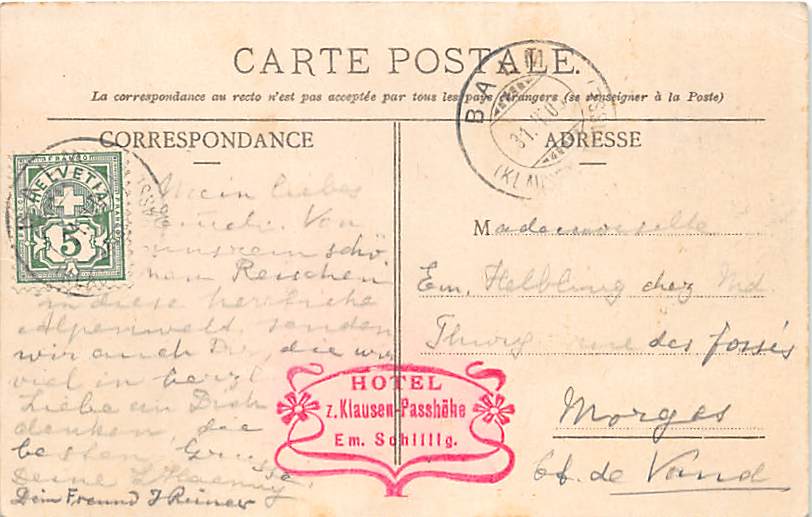 CARTE POSTALE.
La correspondance au recto n'est pas acceptée par tous les pays étrangers (se renseigner à la Poste)
CORRESPONDANCE
ADRESSE
HELVETIA
FRANCO
5
Mein liebes
Von
unsrem schö
nen Reischen
in diese herrliche
Alpenwelt senden
wir auch Dir, die wir
viel in herzl
Liebe an Dich
denken, die
besten Grüsse
Deine
Dein Freund J Reiner
Mademoiselle
Em. Helbling chez Md
Thury rue des fossés
Morges
Ct. de Vaud
HOTEL
z. Klausen-Passhöhe
Em. Schillig.